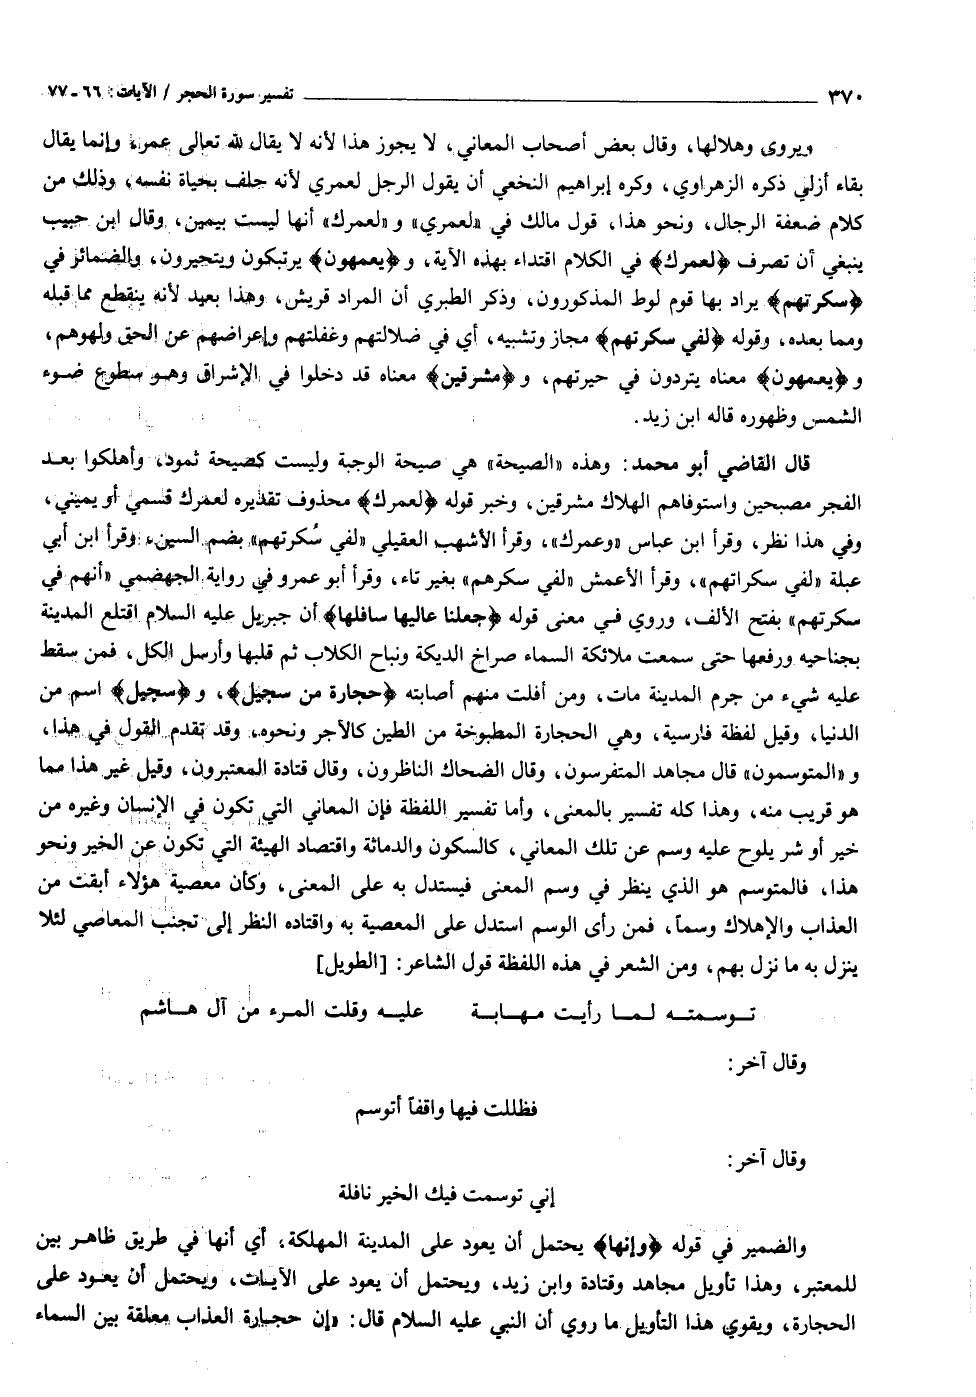 ٣٧٠ ــــــــ تفسير سورة الحجر / الآيات: ٦٦ - ٧٧
ويروى وهلالها، وقال بعض أصحاب المعاني، لا يجوز هذا لأنه لا يقال لله تعالى عمر، وإنما يقال
بقاء أزلي ذكره الزهراوي، وكره إبراهيم النخعي أن يقول الرجل لعمري لأنه حلف بحياة نفسه، وذلك من
كلام ضعفة الرجال، ونحو هذا، قول مالك في «لعمري» و«لعمرك» أنها ليست بيمين، وقال ابن حبيب
ينبغي أن تصرف ﴿لعمرك﴾ في الكلام اقتداء بهذه الآية، و﴿يعمهون﴾ يرتبكون ويتحيرون، والضمائر في
﴿سكرتهم﴾ يراد بها قوم لوط المذكورون، وذكر الطبري أن المراد قريش، وهذا بعيد لأنه ينقطع مما قبله
ومما بعده، وقوله ﴿لفي سكرتهم﴾ مجاز وتشبيه، أي في ضلالتهم وغفلتهم وإعراضهم عن الحق ولهوهم،
و﴿يعمهون﴾ معناه يتردون في حيرتهم، و﴿مشرقين﴾ معناه قد دخلوا في الإشراق وهو سطوع ضوء
الشمس وظهوره قاله ابن زيد.
قال القاضي أبو محمد: وهذه «الصيحة» هي صيحة الوجبة وليست كصيحة ثمود، وأهلكوا بعد
الفجر مصبحين واستوفاهم الهلاك مشرقين، وخبر قوله ﴿لعمرك﴾ محذوف تقديره لعمرك قسمي أو يميني،
وفي هذا نظر، وقرأ ابن عباس «وعمرك»، وقرأ الأشهب العقيلي «لفي سُكرتهم» بضم السين، وقرأ ابن أبي
عبلة «لفي سكراتهم»، وقرأ الأعمش «لفي سكرهم» بغير تاء، وقرأ أبو عمرو في رواية الجهضمي «أنهم في
سكرتهم» بفتح الألف، وروي في معنى قوله ﴿جعلنا عاليها سافلها﴾ أن جبريل عليه السلام اقتلع المدينة
بجناحيه ورفعها حتى سمعت ملائكة السماء صراخ الديكة ونباح الكلاب ثم قلبها وأرسل الكل، فمن سقط
عليه شيء من جرم المدينة مات، ومن أفلت منهم أصابته ﴿حجارة من سجيل﴾، و﴿سجيل﴾ اسم من
الدنيا، وقيل لفظة فارسية، وهي الحجارة المطبوخة من الطين كالآجر ونحوه، وقد تقدم القول في هذا،
و«المتوسمون» قال مجاهد المتفرسون، وقال الضحاك الناظرون، وقال قتادة المعتبرون، وقيل غير هذا مما
هو قريب منه، وهذا كله تفسير بالمعنى، وأما تفسير اللفظة فإن المعاني التي تكون في الإنسان وغيره من
خير أو شر يلوح عليه وسم عن تلك المعاني، كالسكون والدماثة واقتصاد الهيئة التي تكون عن الخير ونحو
هذا، فالمتوسم هو الذي ينظر في وسم المعنى فيستدل به على المعنى، وكأن معصية هؤلاء أبقت من
العذاب والإهلاك وسماً، فمن رأى الوسم استدل على المعصية به واقتاده النظر إلى تجنب المعاصي لئلا
ينزل به ما نزل بهم، ومن الشعر في هذه اللفظة قول الشاعر: [الطويل]
توسمته لما رأيت مهابة عليه وقلت المرء من آل هاشم
وقال آخر:
فظللت فيها واقفاً أتوسم
وقال آخر:
إني توسمت فيك الخير نافلة
والضمير في قوله ﴿وإنها﴾ يحتمل أن يعود على المدينة المهلكة، أي أنها في طريق ظاهر بين
للمعتبر، وهذا تأويل مجاهد وقتادة وابن زيد، ويحتمل أن يعود على الآيات، ويحتمل أن يعود على
الحجارة، ويقوي هذا التأويل ما روي أن النبي عليه السلام قال: «إن حجارة العذاب معلقة بين السماء